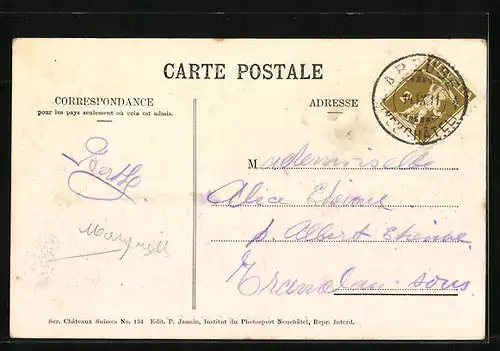 CARTE POSTALE
CORRESPONDANCE
pour les pays seulement où cela est admis.
ADRESSE
NEUCHÂTEL
Berthe
Mademoiselle
Alice Etienne
p. Albert Etienne
Tramelan-sous
Ser. Châteaux Suisses No. 134 Edit. P. Jamin, Institut du Photosport Neuchâtel, Repr. Interd.